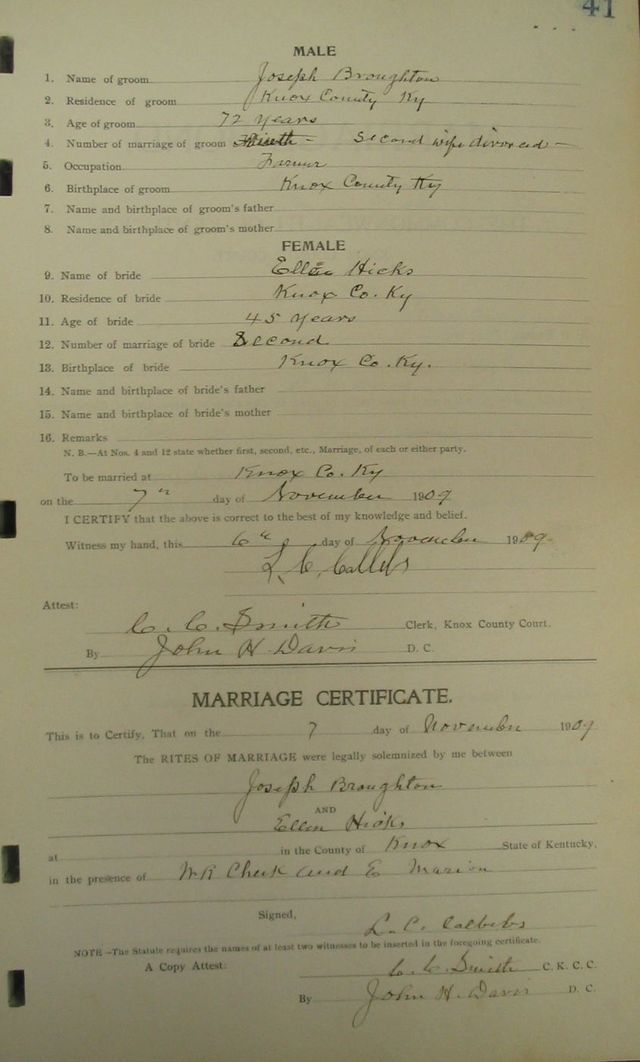 41
MALE
1. Name of groom Joseph Broughton
2. Residence of groom Knox County Ky
3. Age of groom 72 years
4. Number of marriage of groom Second wife divorced
5. Occupation Farmer
6. Birthplace of groom Knox County Ky
7. Name and birthplace of groom's father
8. Name and birthplace of groom's mother
FEMALE
9. Name of bride Ellen Hicks
10. Residence of bride Knox Co. Ky
11. Age of bride 45 years
12. Number of marriage of bride Second
13. Birthplace of bride Knox Co. Ky.
14. Name and birthplace of bride's father
15. Name and birthplace of bride's mother
16. Remarks
N. B.—At Nos. 4 and 12 state whether first, second, etc., Marriage, of each or either party.
To be married at Knox Co. Ky
on the 7th day of November 1909
I CERTIFY that the above is correct to the best of my knowledge and belief.
Witness my hand, this 6th day of November 1909
L. C.
Attest:
C. C. Smith Clerk, Knox County Court.
By John H. Davis D. C.
MARRIAGE CERTIFICATE.
This is to Certify, That on the 7 day of November 1909
The RITES OF MARRIAGE were legally solemnized by me between
Joseph Broughton
AND
Ellen Hicks
at in the County of Knox State of Kentucky,
in the presence of W R Cheek and E Marion
Signed,
L. C.
NOTE—The Statute requires the names of at least two witnesses to be inserted in the foregoing certificate.
A Copy Attest: C. C. Smith C. K. C. C.
By John H. Davis D. C.